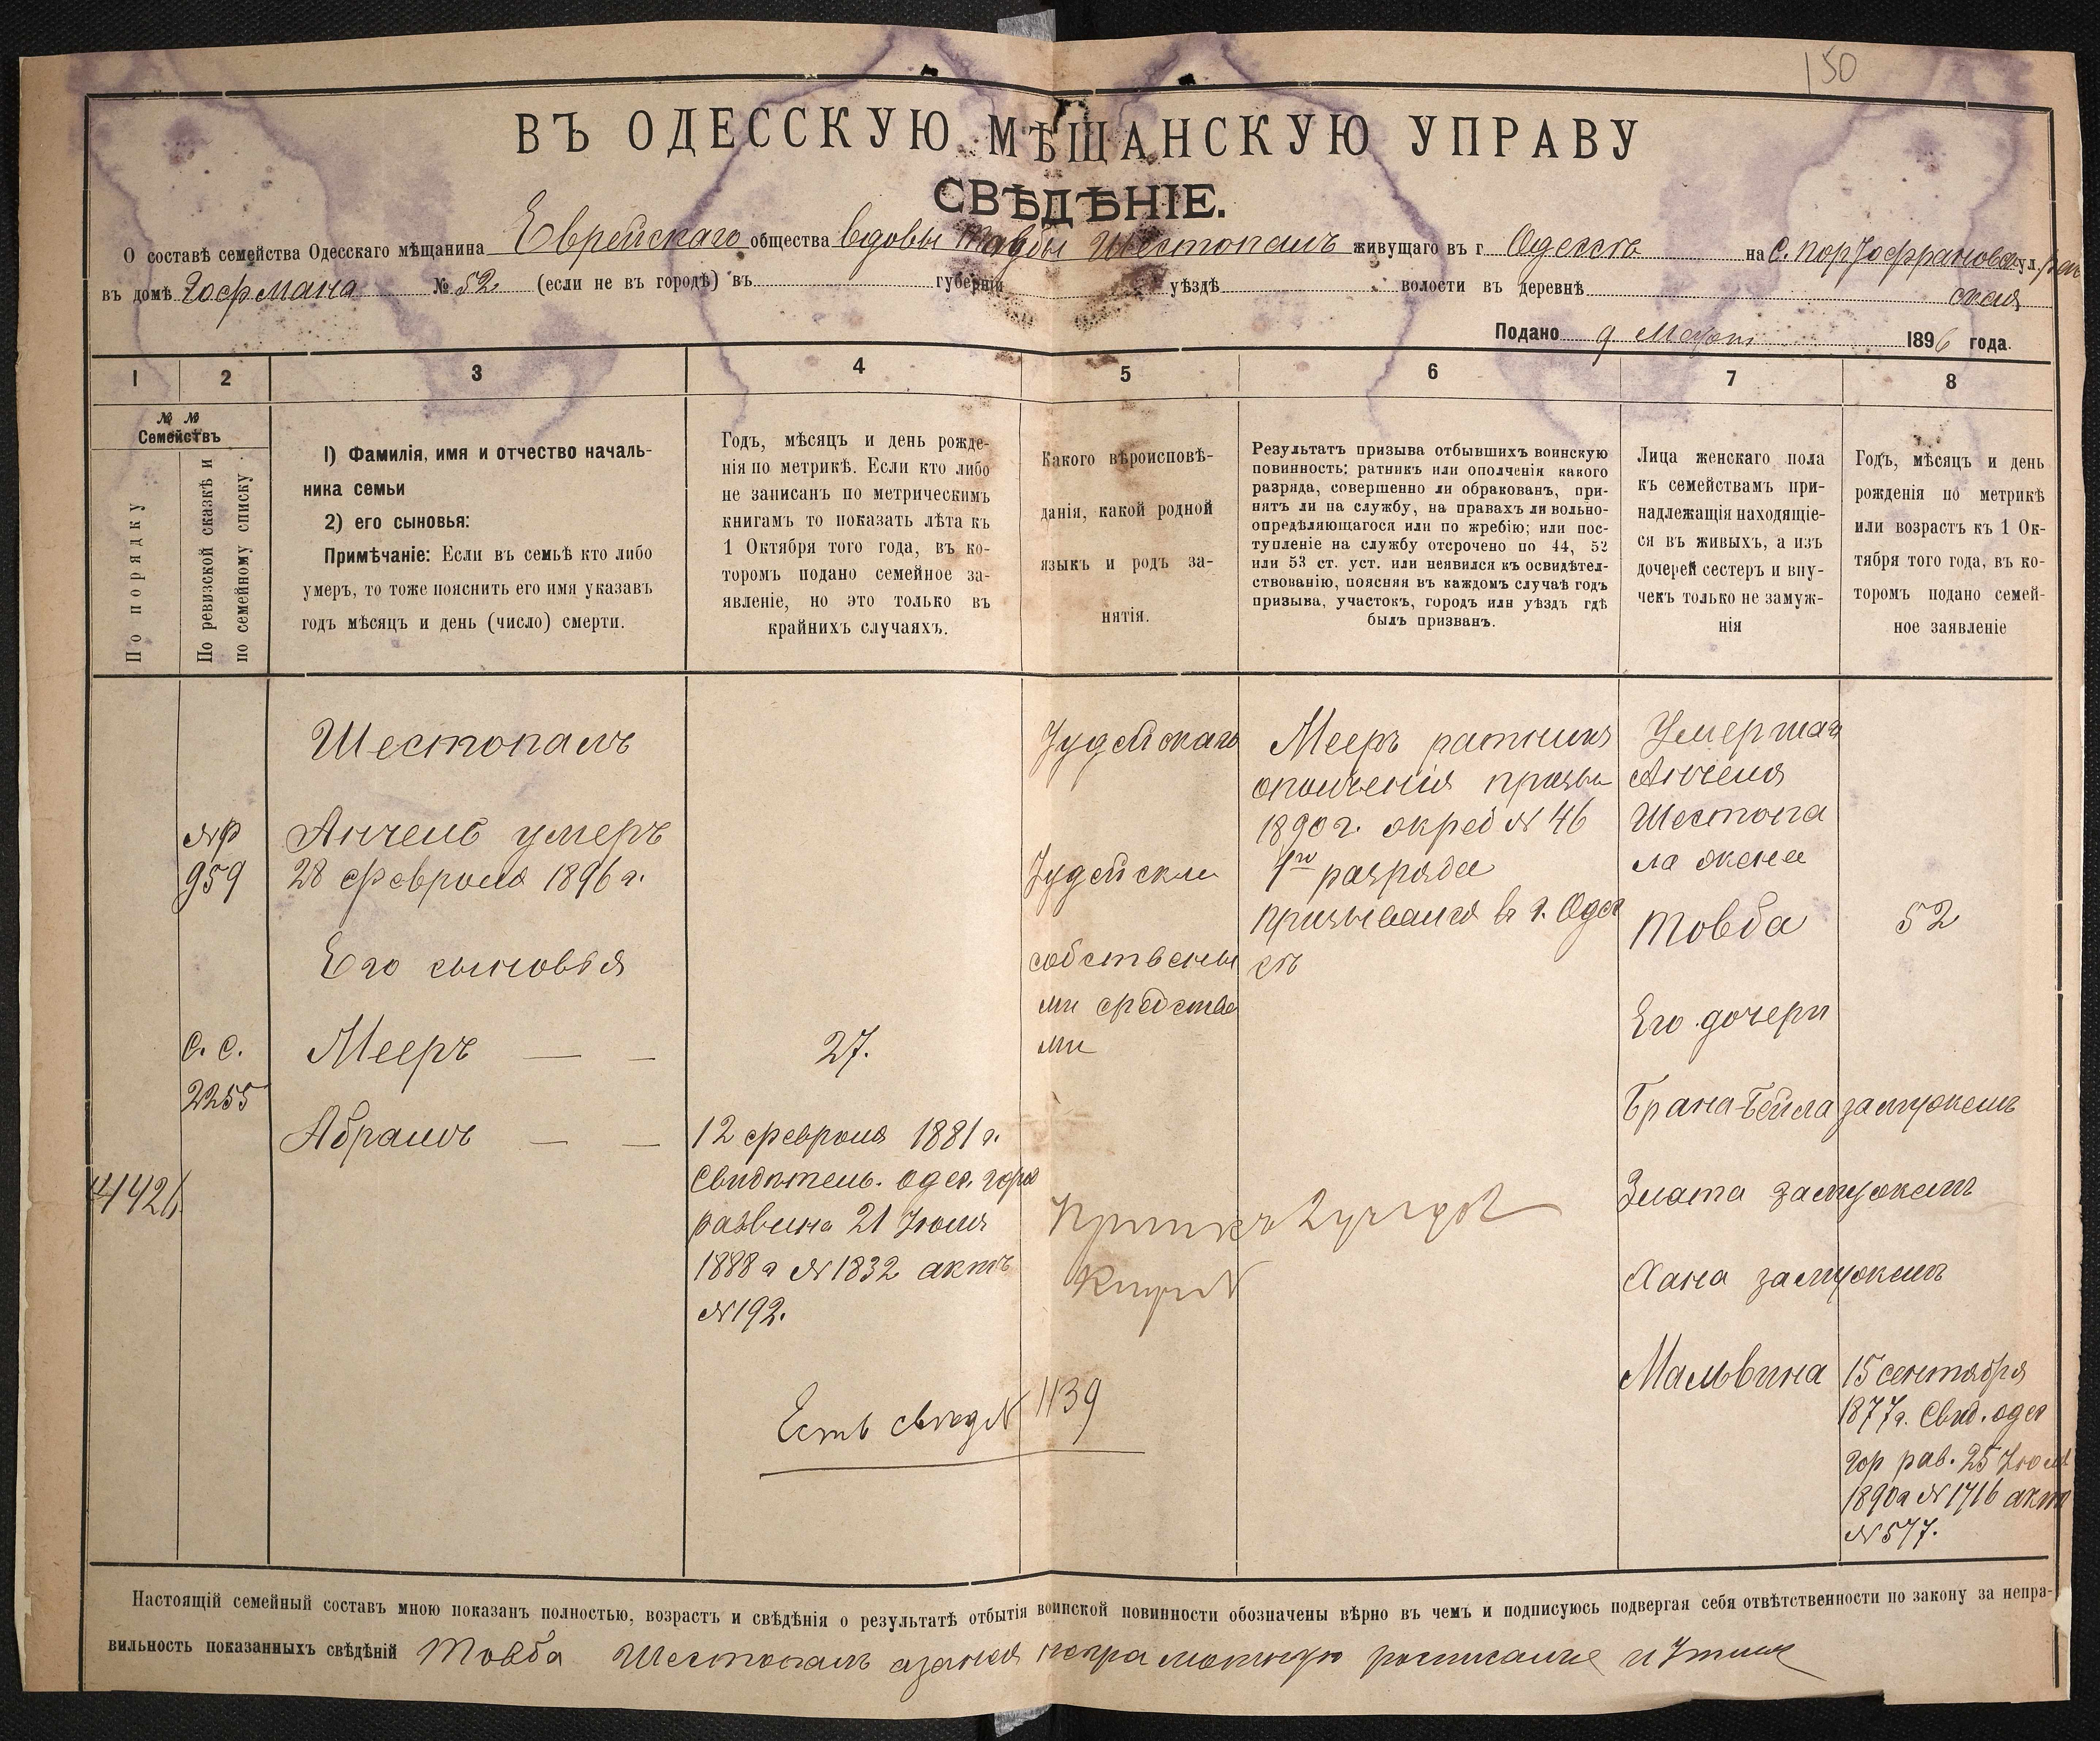 150
ВЪ ОДЕССКУЮ МѢЩАНСКУЮ УПРАВУ
СВѢДѢНІЕ.
О составѣ семейства Одесскаго мѣщанина Еврейскаго общества вдовы Товбы Шестопалъ живущаго въ г. Одессѣ на ул.
въ домѣ Гофмана № 52 (если не въ городѣ) въ губерніи уѣздѣ волости въ деревнѣ
Подано 9 Март 1896 года.
1 2 3 4 5 6 7 8
№ №
Семействъ
По порядку
По ревизской сказкѣ и
по семейному списку.
1) Фамилія, имя и отчество началь-
ника семьи
2) его сыновья:
Примѣчаніе: Если въ семьѣ кто либо
умеръ, то тоже пояснить его имя указавъ
годъ мѣсяцъ и день (число) смерти.
Годъ, мѣсяцъ и день рожде-
нія по метрикѣ. Если кто либо
не записанъ по метрическимъ
книгамъ то показать лѣта къ
1 Октября того года, въ ко-
торомъ подано семейное за-
явленіе, но это только въ
крайнихъ случаяхъ.
Какого вѣроисповѣ-
данія, какой родной
языкъ и родъ за-
нятія.
Результатъ призыва отбывшихъ воинскую
повинность: ратникъ или ополченія какого
разряда, совершенно ли обракованъ, при-
нятъ ли на службу, на правахъ ли вольно-
опредѣляющагося или по жребію; или пос-
тупленіе на службу отсрочено по 44, 52
или 53 ст. уст. или неявился къ освидѣтел-
ствованію, поясняя въ каждомъ случаѣ годъ
призыва, участокъ, городъ или уѣздъ гдѣ
былъ призванъ.
Лица женскаго пола
къ семействамъ при-
надлежащія находящіе-
ся въ живыхъ, а изъ
дочерей сестеръ и вну-
чекъ только не замуж-
нія
Годъ, мѣсяцъ и день
рожденія по метрикѣ
или возрастъ къ 1 Ок-
тября того года, въ ко-
торомъ подано семей-
ное заявленіе
959
С. С.
2255
Шестопалъ
Анчель умеръ
28 февраля 1896 г.
Его сыновья
Мееръ — —
Абрамъ — —
27.
12 февраля 1881 г.
Свидѣтель. одес. гор
раввина 21 Іюля
1888 г № 1832 актъ
№ 192.
Есть свѣд № 1139
Іудейскаго
Іудейскій
собственны
ми средства
ми
Мееръ ратникъ
ополченія призы
1890 г. № 46
1го разряда
призывался в г. Одес
сѣ
Умершаго
Анчеля
Шестопа
ла жена
Товба 52
Его дочери
Брана-Бейла замужемъ
Злата замужемъ
Хана замужемъ
Мальвина 15 сентября
1877 г. Свид. одес
гор рав. 25 Іюля
1890 г № 1716 актъ
№ 577.
Настоящій семейный составъ мною показанъ полностью, возрастъ и свѣдѣнія о результатѣ отбытія воинской повинности обозначены вѣрно въ чемъ и подписуюсь подвергая себя отвѣтственности по закону за непра-
вильность показанныхъ свѣдѣній Товба Шестопалъ